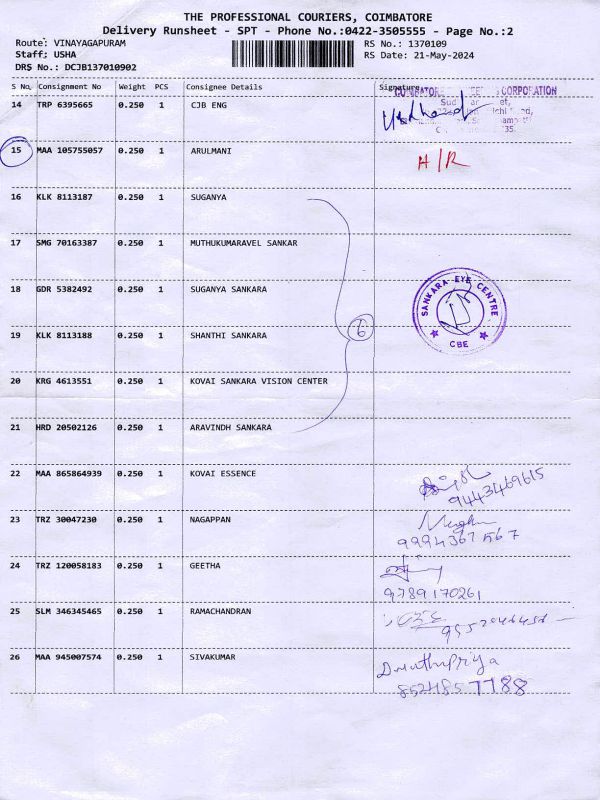 THE PROFESSIONAL COURIERS, COIMBATORE
Delivery Runsheet - SPT - Phone No.:0422-3505555 - Page No.:2
Route: VINAYAGAPURAM
RS No.: 1370109
Staff; USHA
RS Date: 21-May-2024
DRS No.: DCJB137010902
S No. Consignment No Weight PCS Consignee Details Signature
14 TRP 6395665 0.250 1 CJB ENG
CORPORATION
15 MAA 105755057 0.250 1 ARULMANI H/R
16 KLK 8113187 0.250 1 SUGANYA
17 SMG 70163387 0.250 1 MUTHUKUMARAVEL SANKAR
18 GDR 5382492 0.250 1 SUGANYA SANKARA
SANKARA EYE CENTRE
CBE
19 KLK 8113188 0.250 1 SHANTHI SANKARA
6
20 KRG 4613551 0.250 1 KOVAI SANKARA VISION CENTER
21 HRD 20502126 0.250 1 ARAVINDH SANKARA
22 MAA 865864939 0.250 1 KOVAI ESSENCE
9443469615
23 TRZ 30047230 0.250 1 NAGAPPAN
9994367567
24 TRZ 120058183 0.250 1 GEETHA
9789170261
25 SLM 346345465 0.250 1 RAMACHANDRAN
26 MAA 945007574 0.250 1 SIVAKUMAR
8524857788